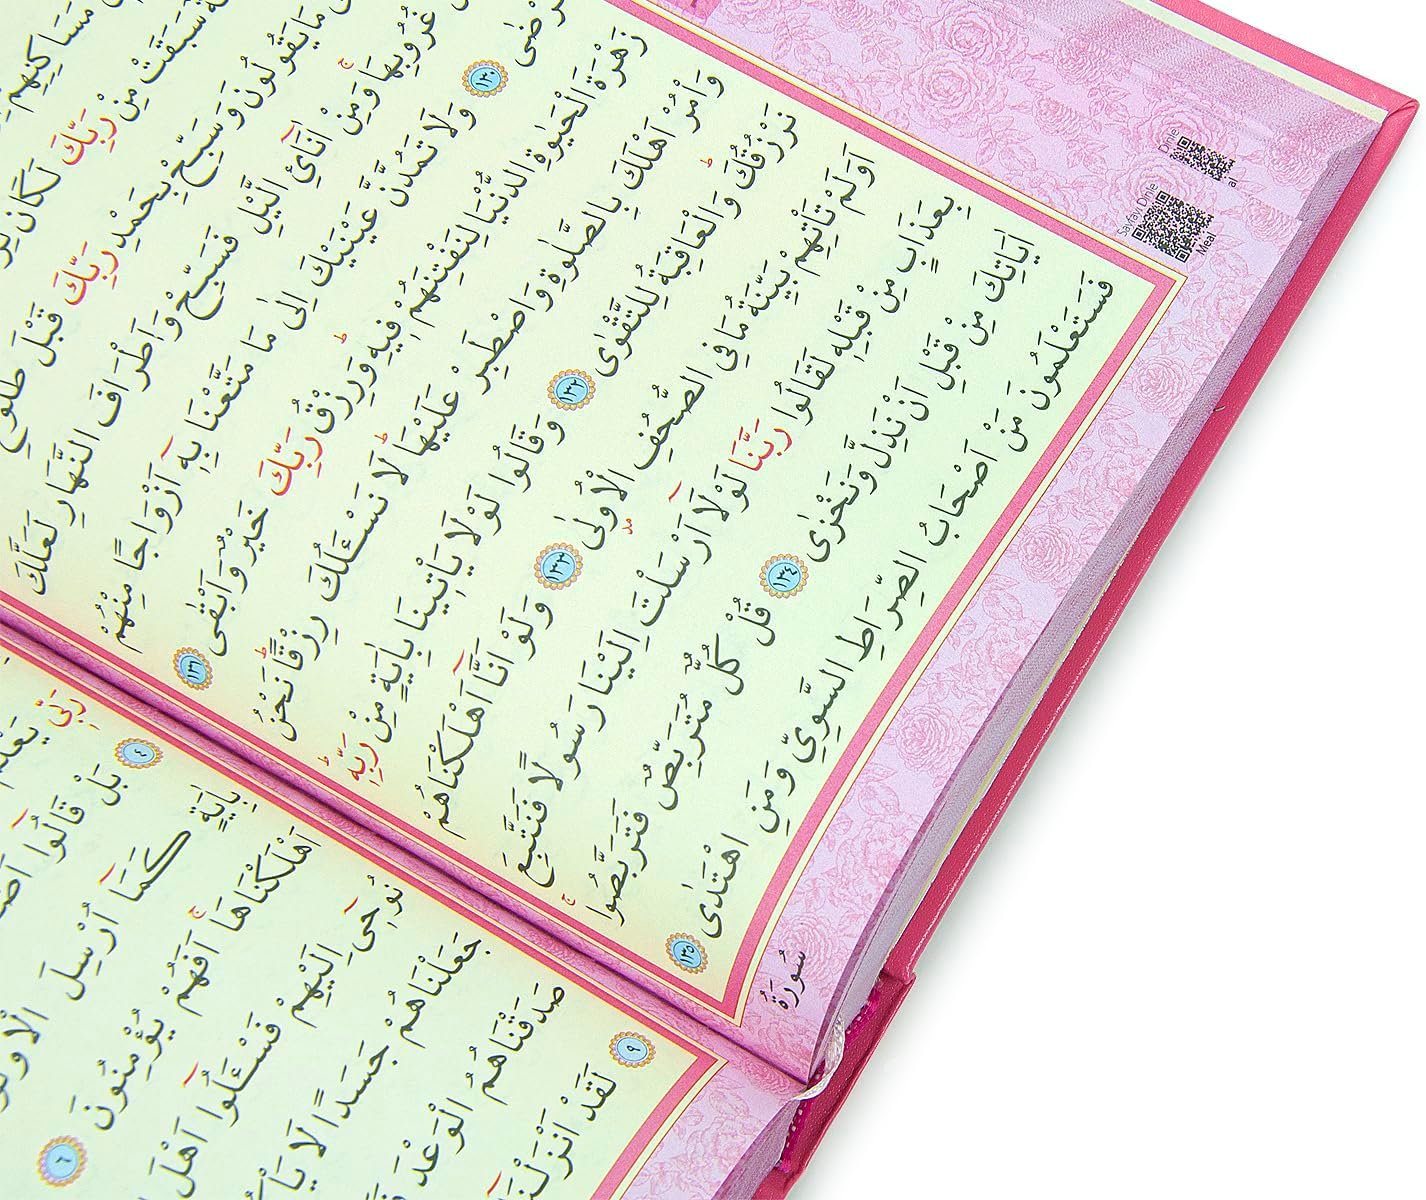 مَسَاكِنِهِمْ
سَبَقَتْ مِنْ رَبِّكَ لَكَانَ
مَا يَقُولُونَ وَسَبِّحْ بِحَمْدِ رَبِّكَ قَبْلَ طُلُوعِ
غُرُوبِهَا وَمِنْ اٰنَٓائِ الَّيْلِ فَسَبِّحْ وَاَطْرَافَ النَّهَارِ لَعَلَّكَ
تَرْضٰى ١٣٠ وَلَا تَمُدَّنَّ عَيْنَيْكَ اِلٰى مَا مَتَّعْنَا بِهٖٓ اَزْوَاجًا مِنْهُمْ
زَهْرَةَ الْحَيٰوةِ الدُّنْيَا لِنَفْتِنَهُمْ فٖيهِ وَرِزْقُ رَبِّكَ خَيْرٌ وَاَبْقٰى ١٣١
وَأْمُرْ اَهْلَكَ بِالصَّلٰوةِ وَاصْطَبِرْ عَلَيْهَا لَا نَسْـَٔلُكَ رِزْقًا نَحْنُ
نَرْزُقُكَ وَالْعَاقِبَةُ لِلتَّقْوٰى ١٣٢ وَقَالُوا لَوْلَا يَأْتٖينَا بِاٰيَةٍ مِنْ رَبِّهٖ
اَوَلَمْ تَأْتِهِمْ بَيِّنَةُ مَا فِي الصُّحُفِ الْاُولٰى ١٣٣ وَلَوْ اَنَّٓا اَهْلَكْنَاهُمْ
بِعَذَابٍ مِنْ قَبْلِهٖ لَقَالُوا رَبَّنَا لَوْلَٓا اَرْسَلْتَ اِلَيْنَا رَسُولًا فَنَتَّبِعَ
اٰيَاتِكَ مِنْ قَبْلِ اَنْ نَذِلَّ وَنَخْزٰى ١٣٤ قُلْ كُلٌّ مُتَرَبِّصٌ فَتَرَبَّصُوا
فَسَتَعْلَمُونَ مَنْ اَصْحَابُ الصِّرَاطِ السَّوِيِّ وَمَنِ اهْتَدٰى ١٣٥
Sayfayı Dinle
Meal
Dinle
سُورَةُ
رَبّٖي يَعْلَمُ
٤ بَلْ قَالُٓوا
بِاٰيَةٍ كَمَٓا اُرْسِلَ
اَهْلَكْنَاهَا اَفَهُمْ يُؤْمِنُونَ ٦
نُوحٖٓي اِلَيْهِمْ فَسْـَٔلُٓوا اَهْلَ
جَعَلْنَاهُمْ جَسَدًا لَا
صَدَقْنَاهُمُ الْوَعْدَ
٩ لَقَدْ اَنْزَلْنَٓا